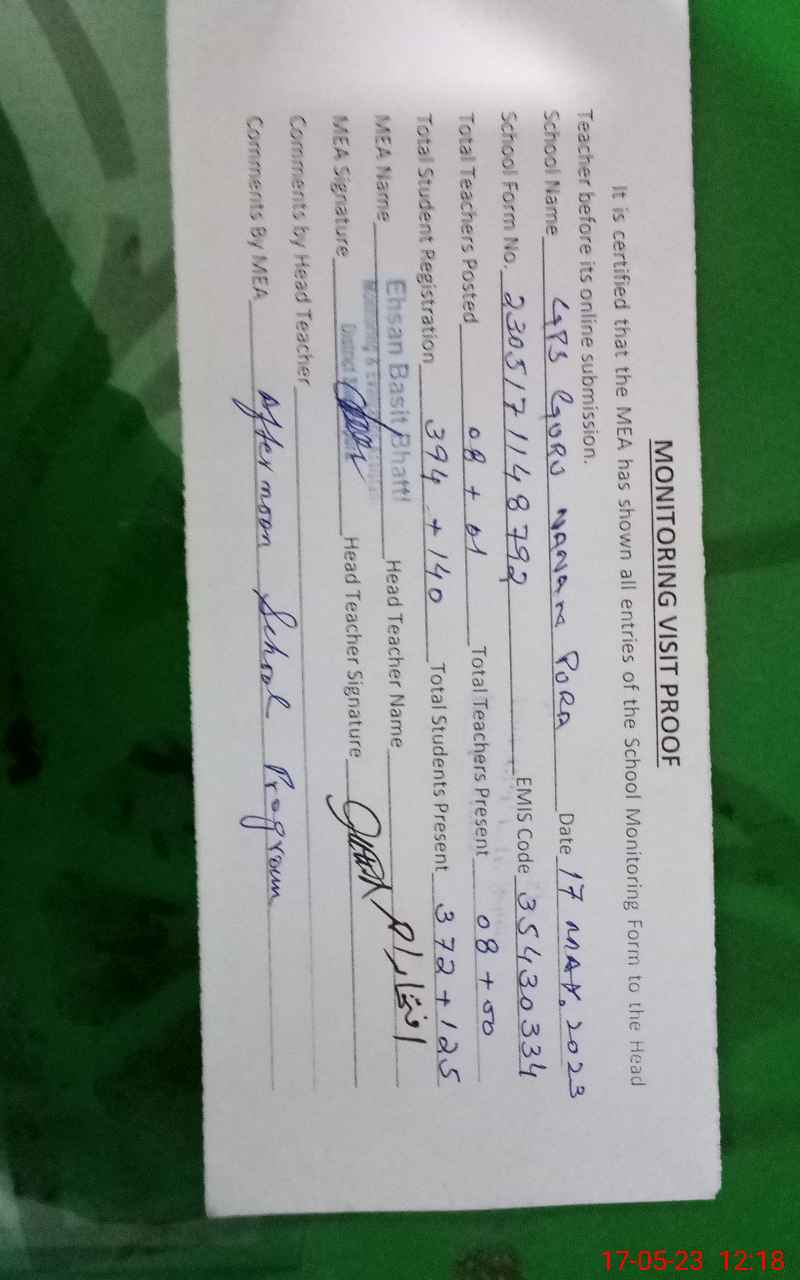 MONITORING VISIT PROOF
It is certified that the MEA has shown all entries of the School Monitoring Form to the Head
Teacher before its online submission.
School Name GPS GURU NANAK PURA Date 17 MAY. 2023
School Form No. 2305171148792 EMIS Code 35430334
Total Teachers Posted 08 + 01 Total Teachers Present 08 + 00
Total Student Registration 394 + 140 Total Students Present 372 + 125
MEA Name Ehsan Basit Bhatti Head Teacher Name
Monitoring &
District
MEA Signature Head Teacher Signature
Comments by Head Teacher
Comments By MEA Afternoon School Program
17-05-23 12:18